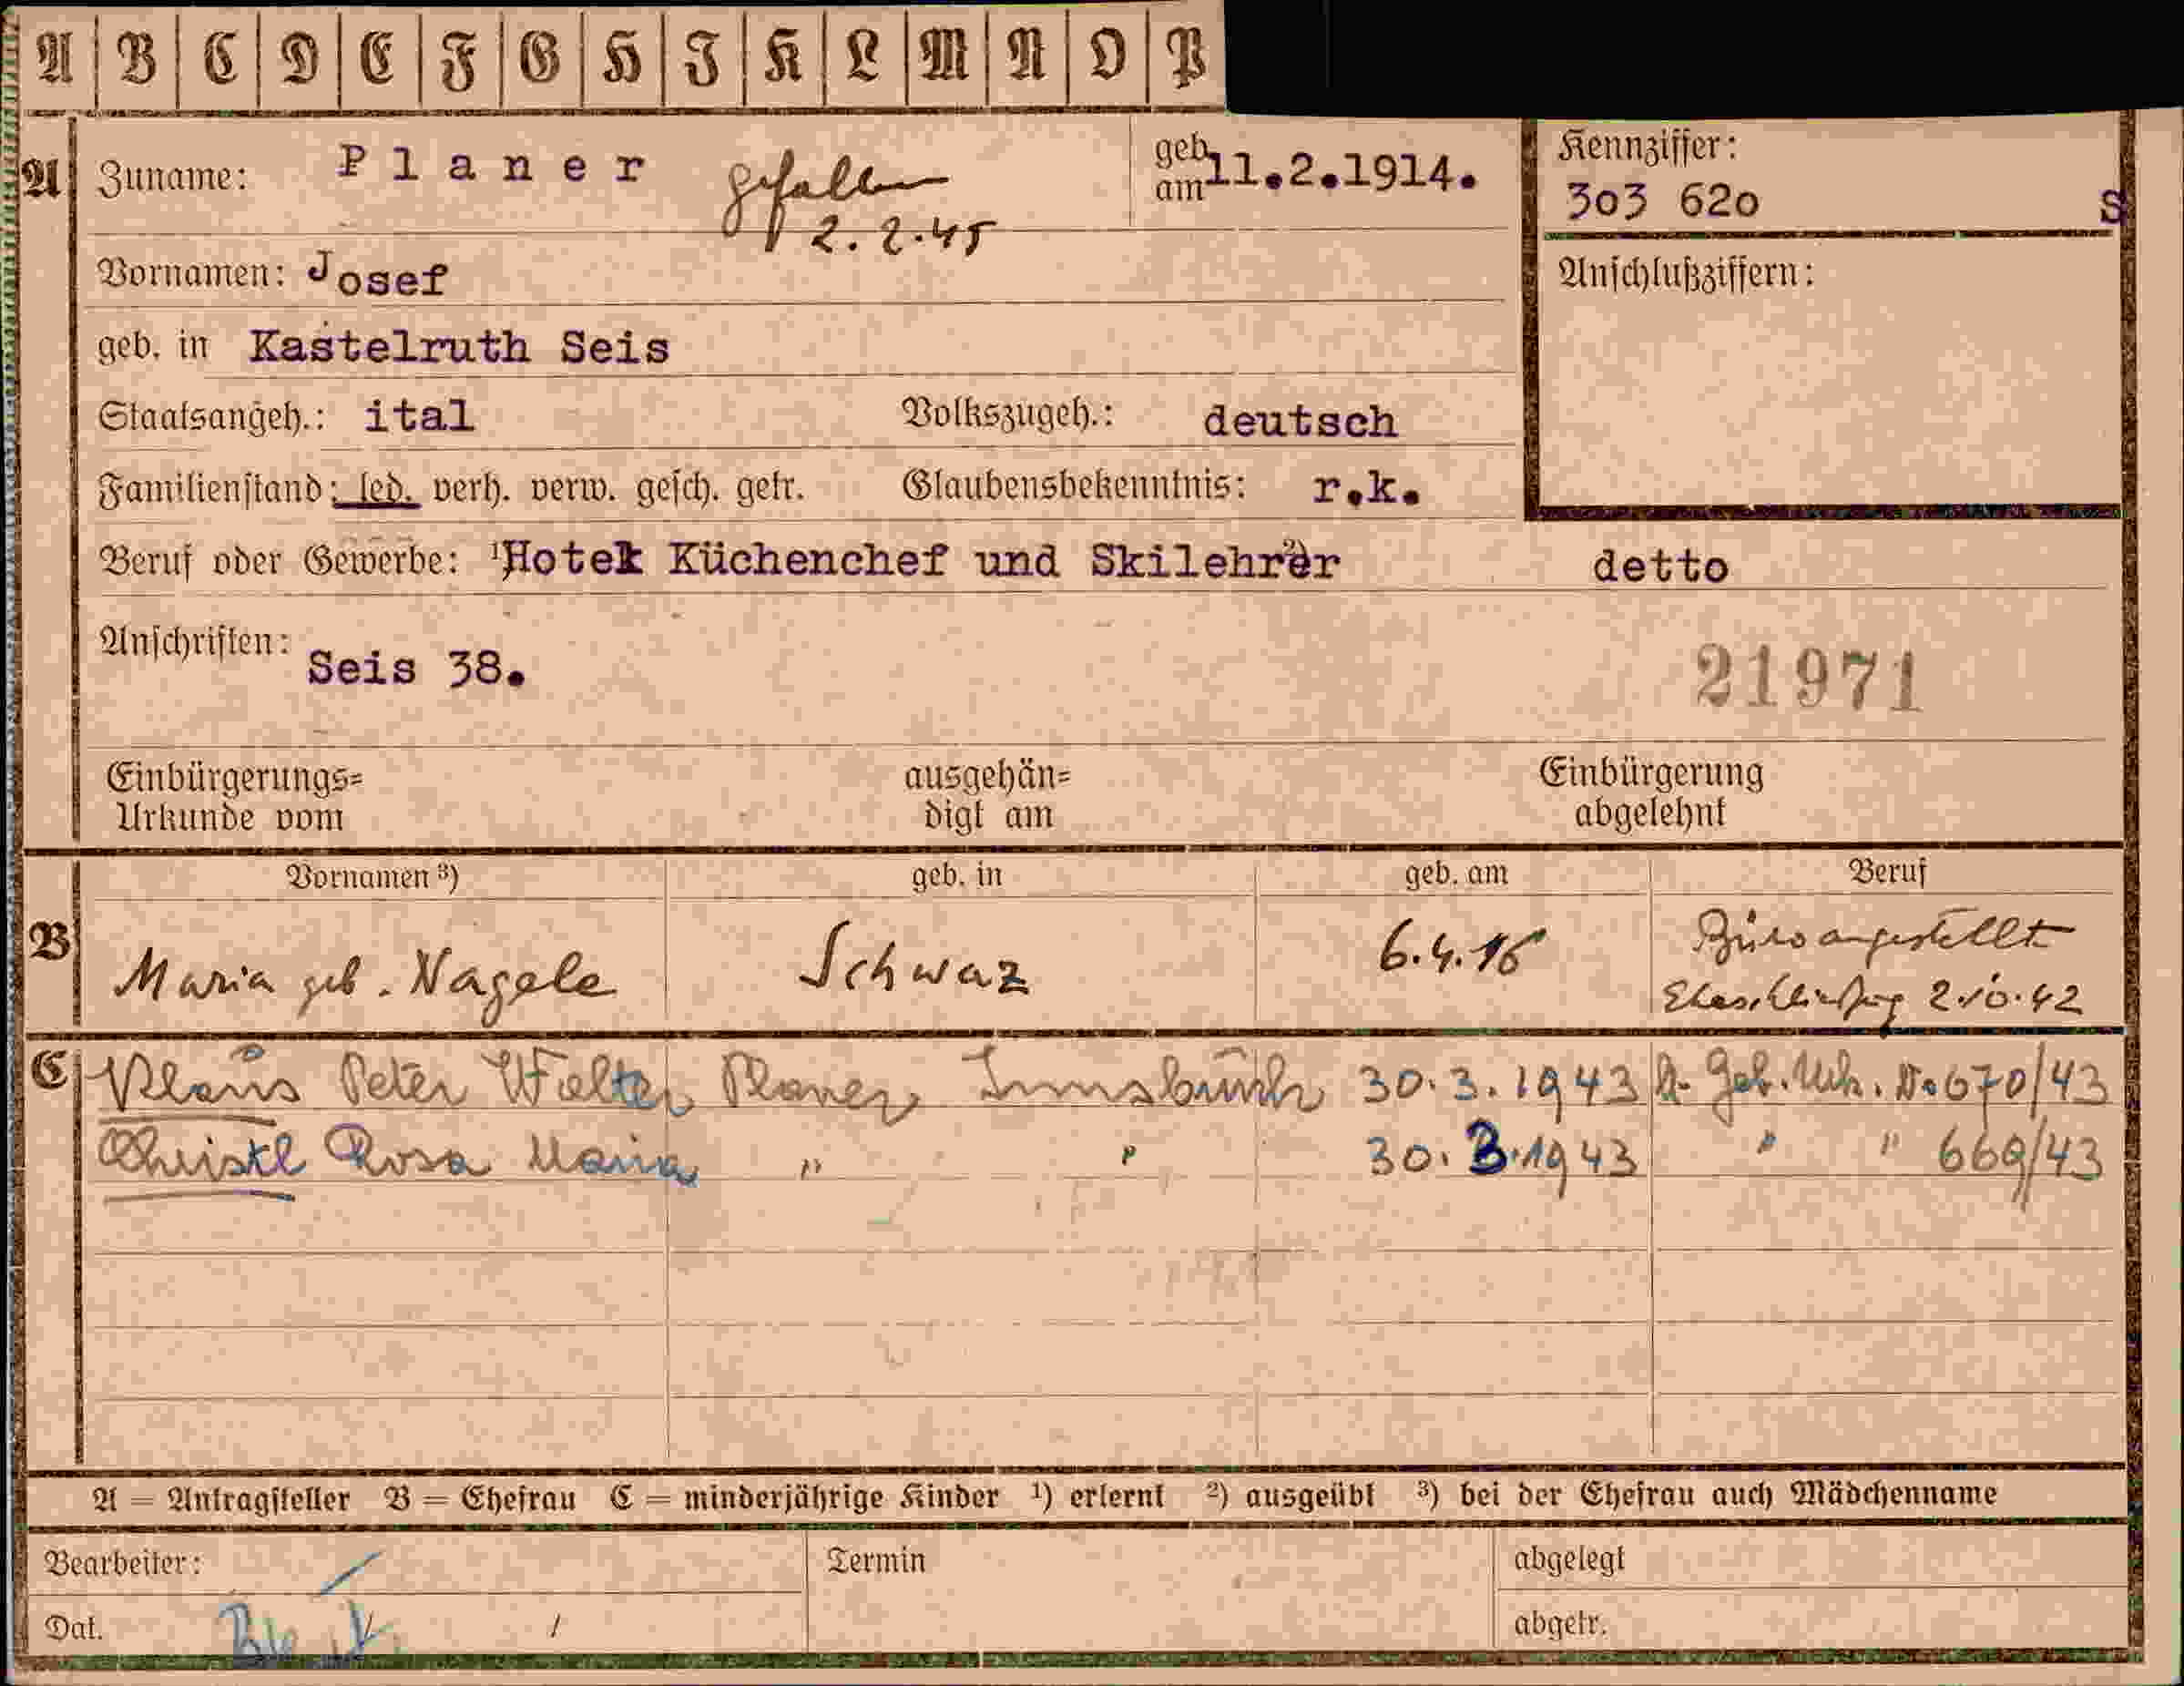 A B C D E F G H I K L M N O P
A Zuname: Planer gefallen geb. am 11.2.1914. Kennziffer:
2.2.45 303 620 S
Vornamen: Josef Anschlußziffern:
geb. in Kastelruth Seis
Staatsangeh.: ital Volkszugeh.: deutsch
Familienstand: led. verh. verw. gesch. getr. Glaubensbekenntnis: r.k.
Beruf oder Gewerbe: 1) Hotel Küchenchef und Skilehrer 2) detto
Anschriften: Seis 38. 21971
Einbürgerungs= ausgehän= Einbürgerung
Urkunde vom digt am abgelehnt
Vornamen ³) geb. in geb. am Beruf
B Maria geb. Nagele Schwaz 6.4.16 Büroangestellt
Eheschließung 2.10.42
C Klaus Peter Walter Planer Innsbruck 30.3.1943 Geb. Urk. No 670/43
Christl Rosa Maria " " 30.3.1943 " " 669/43
A = Antragsteller B = Ehefrau C = minderjährige Kinder ¹) erlernt ²) ausgeübt ³) bei der Ehefrau auch Mädchenname
Bearbeiter: Termin abgelegt
Dat. abgetr.